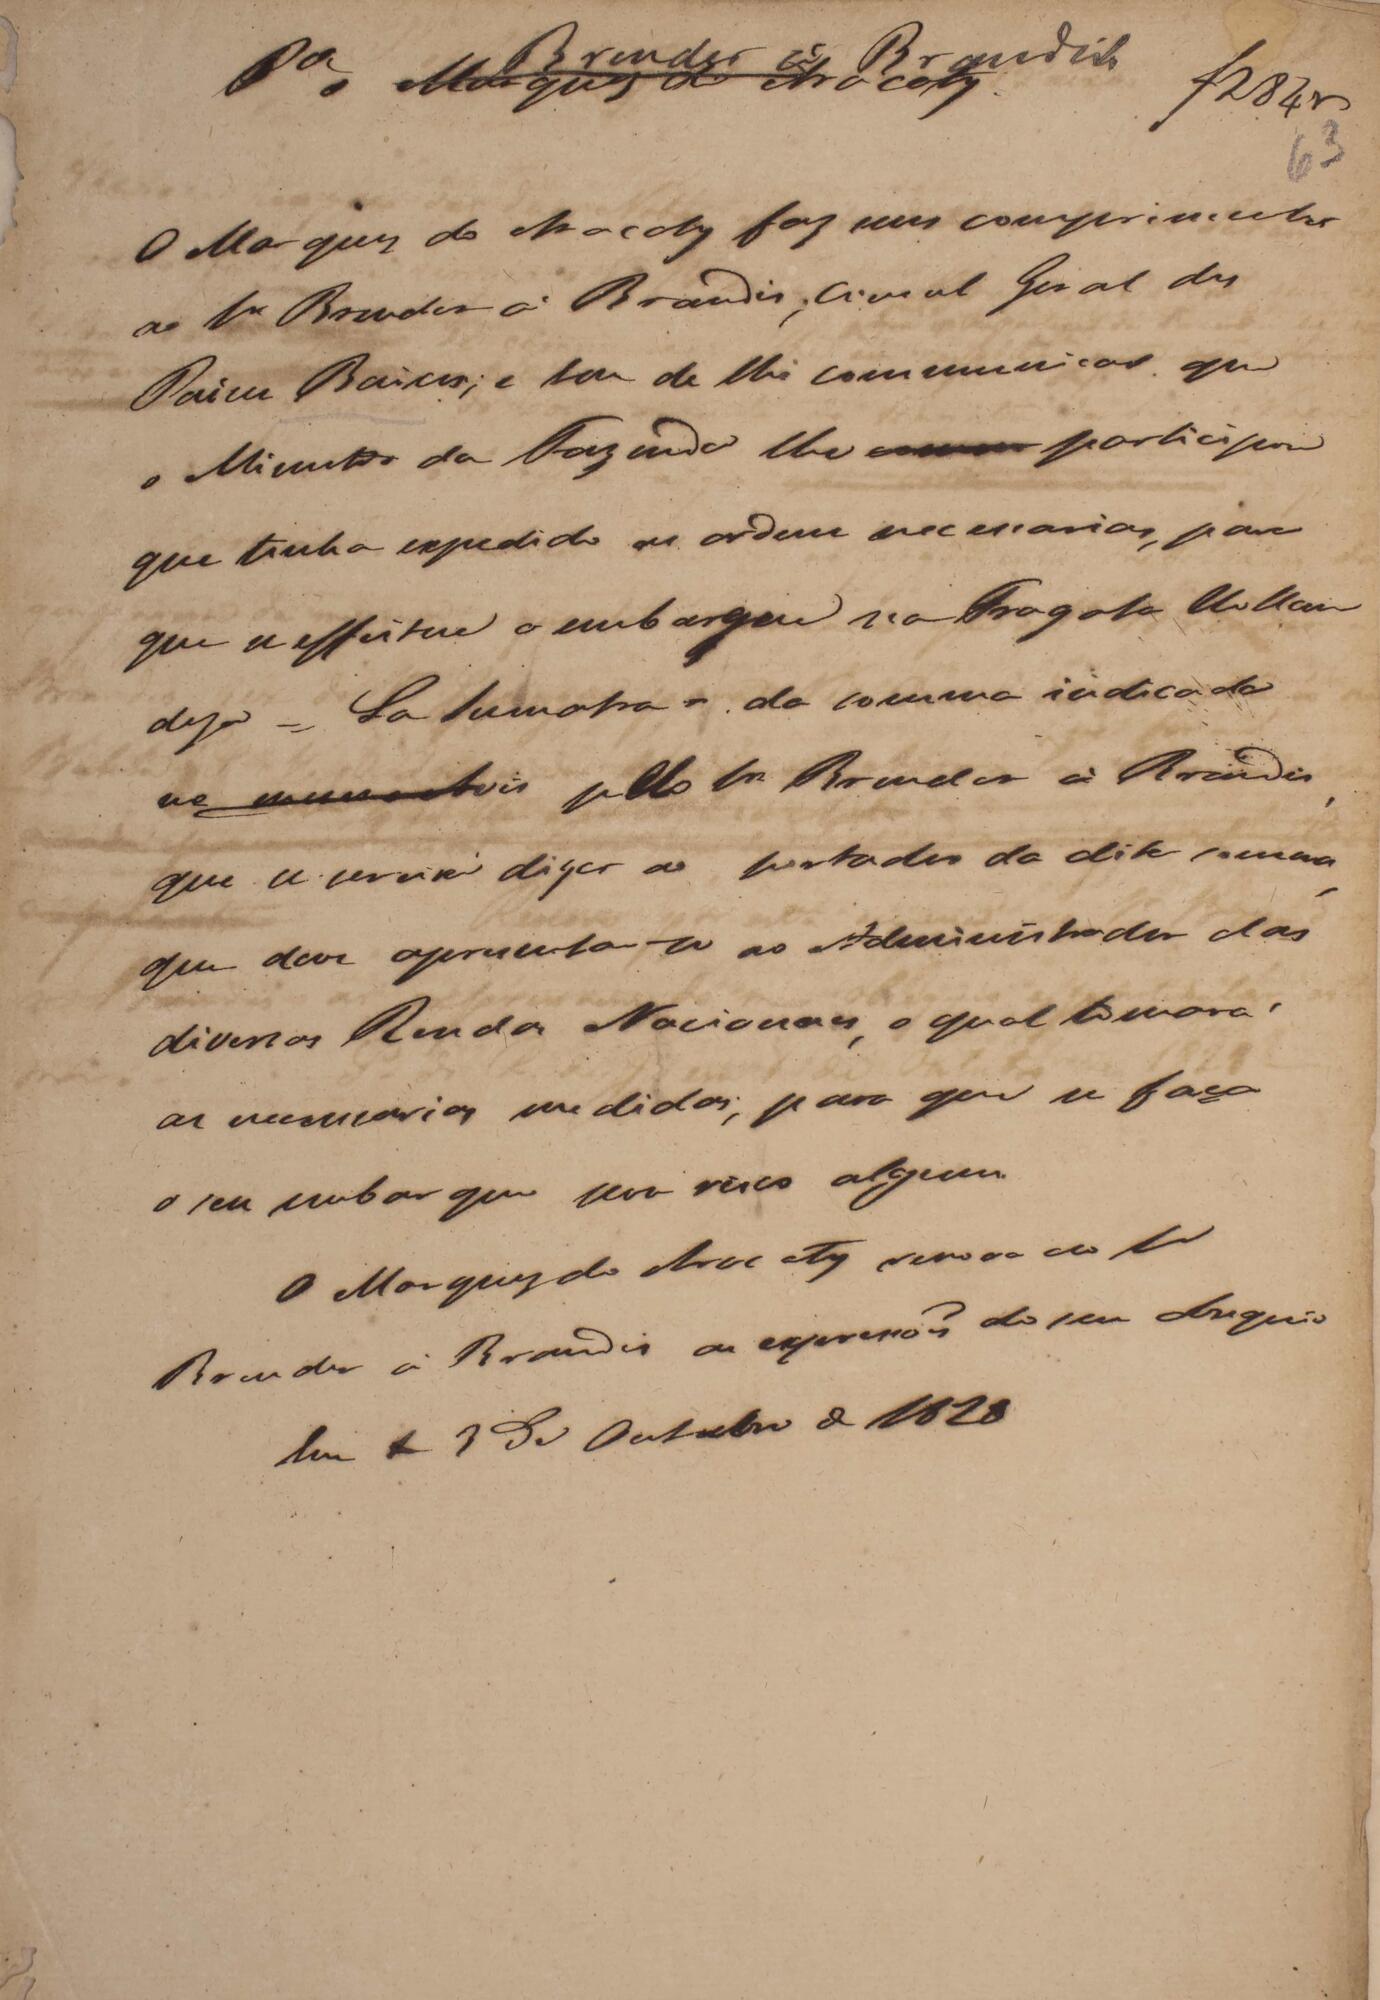 Brender à Brandis
Pa o Marquez do Aracaty
f 284 v
63
O Marquez do Aracaty faz seus comprimentos
ao Sr Brender à Brandis, Consul Geral dos
Paises Baixos; e tem de lhe communicar que
o Ministro da Fazenda lhe participou
que tinha expedido as ordens necessarias, para
que se effeitue o embarque na Fragata Hollan
deza = La Sumatra = da somma indicada
pello Sr Brender à Brandis,
que se servirá dizer ao portador da dita somma,
que deve apresentar-se ao Administrador das
diversas Rendas Nacionaes, o qual tomará
as necessarias medidas, para que se faça
o seu embarque sem risco algum.
O Marquez do Aracaty renova ao Sr
Brender à Brandis as expressoẽs do seu obsequio
Em 3 de Outubro de 1828